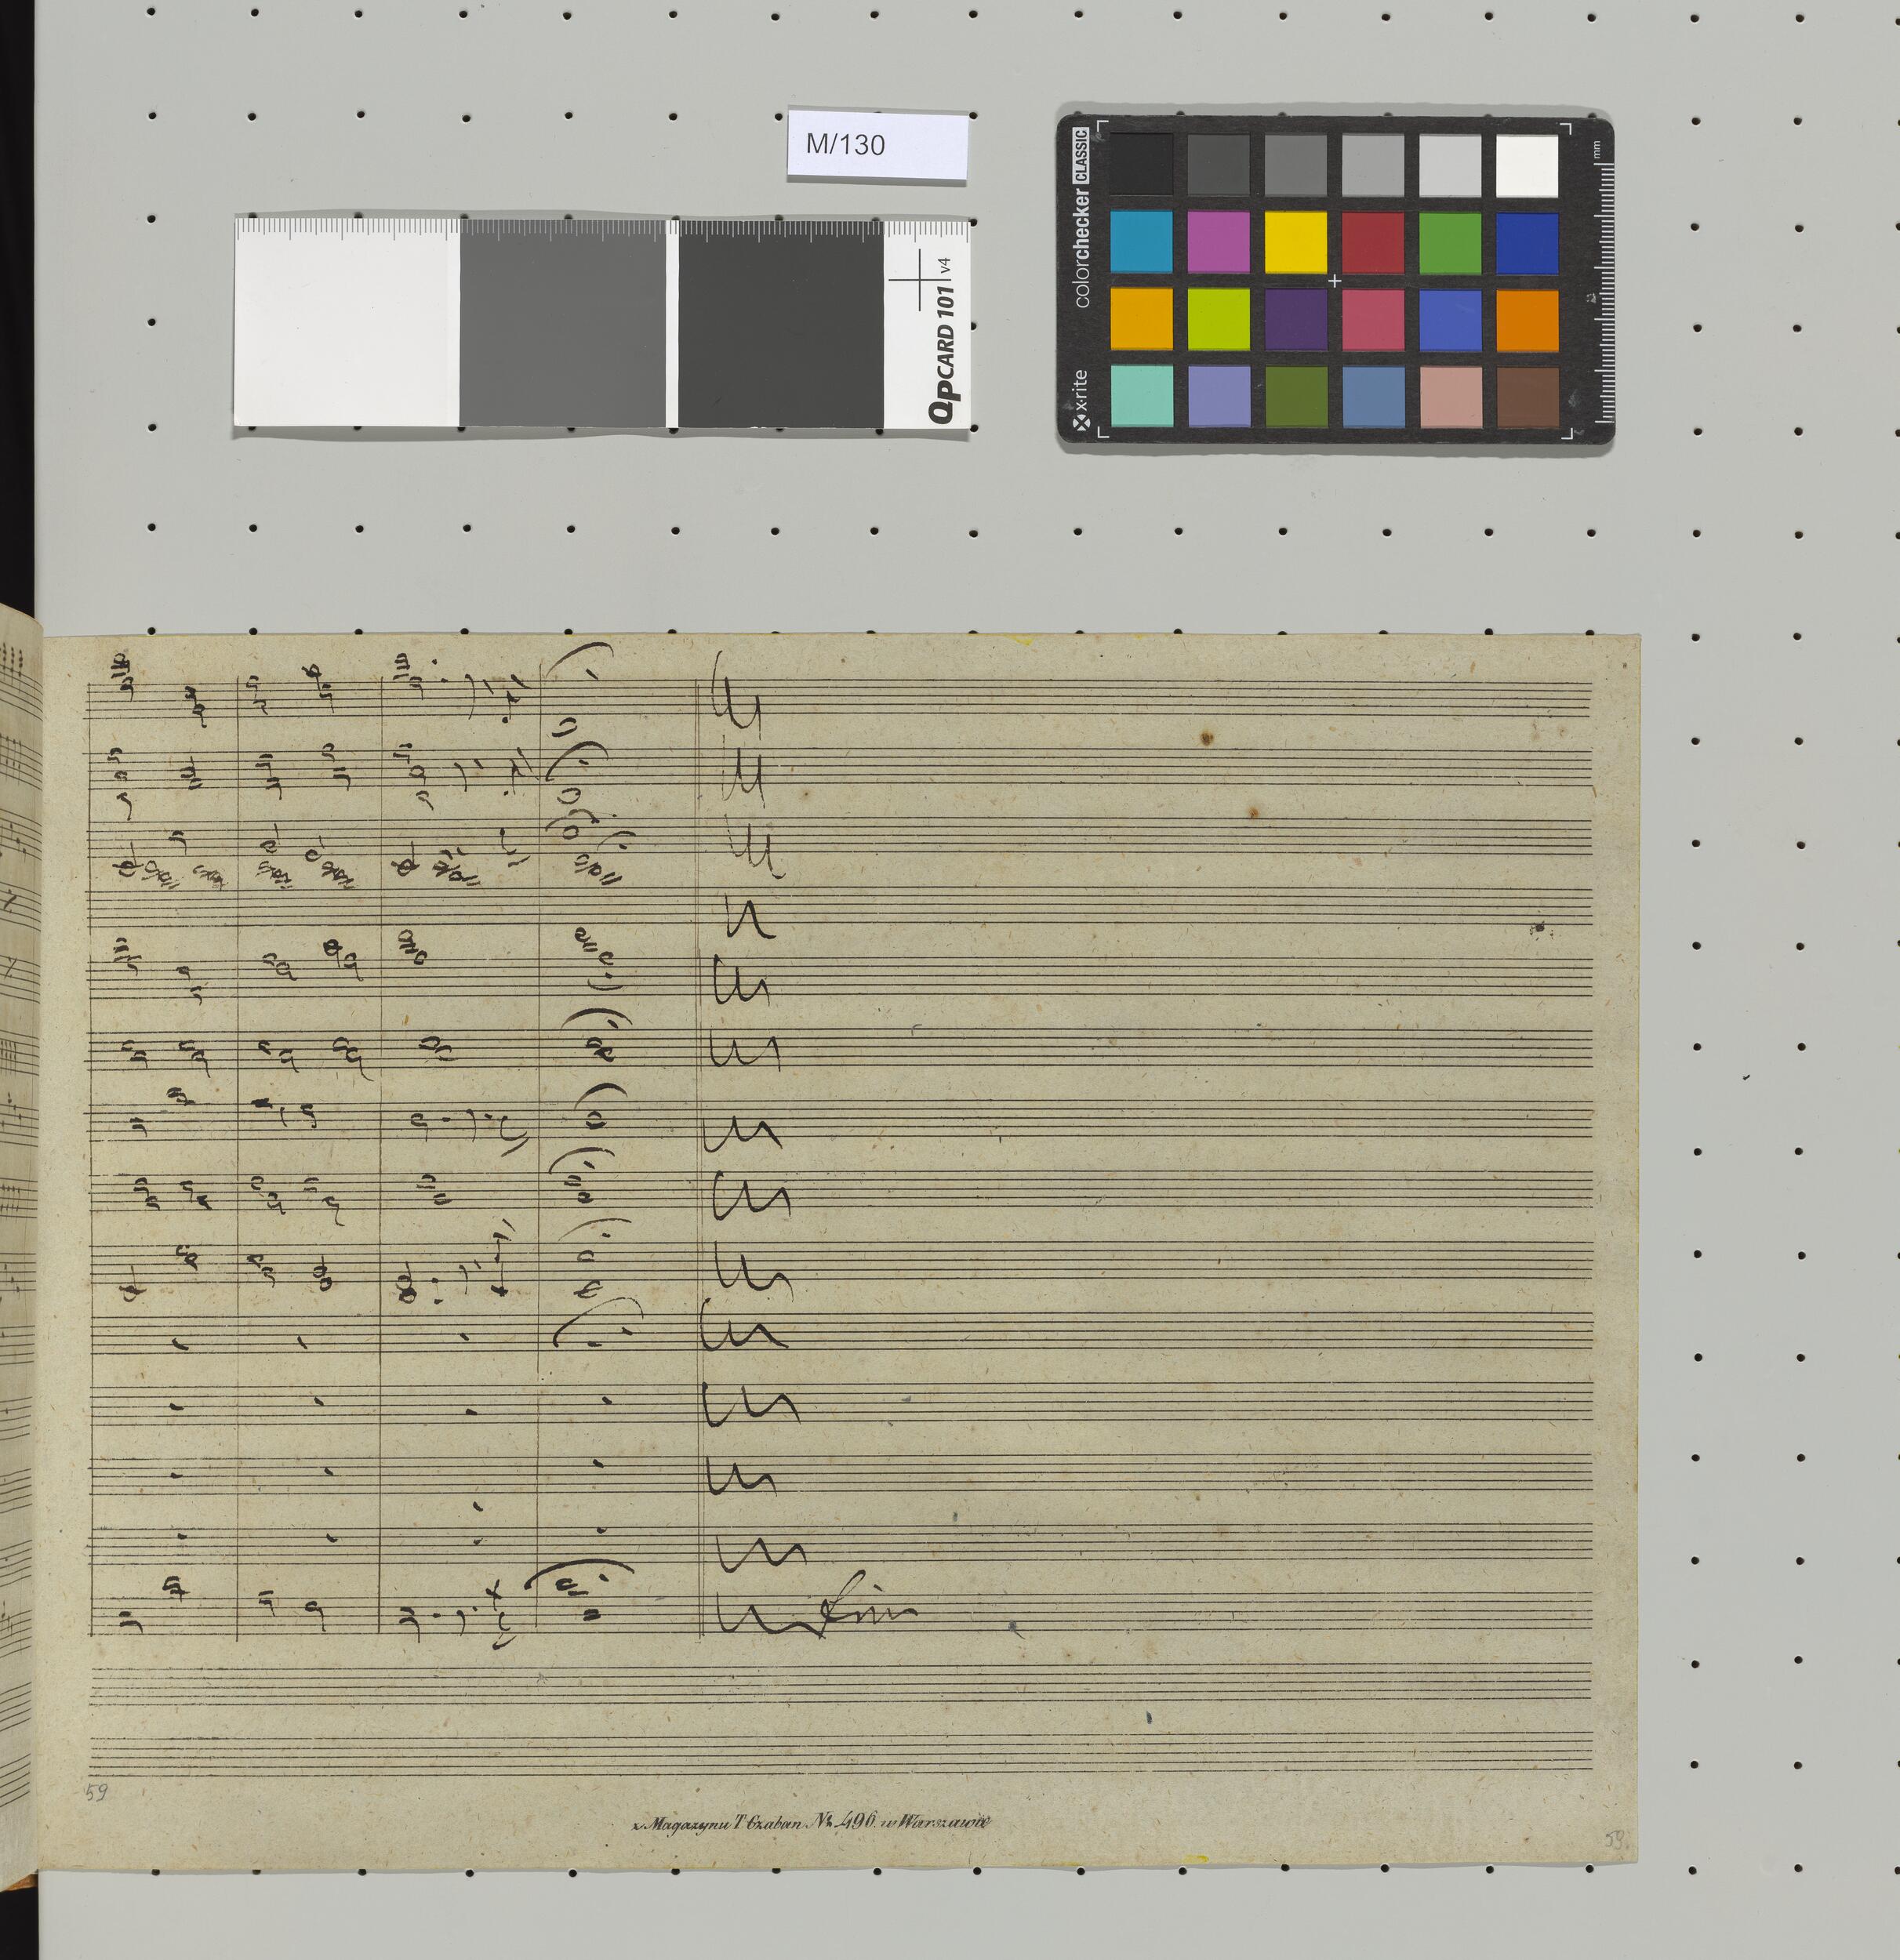 M/130
QPCARD 101 v4
x·rite colorchecker CLASSIC
mm
Fin
59
z Magazynu T Czaban No. 496 w Warszawie
59.